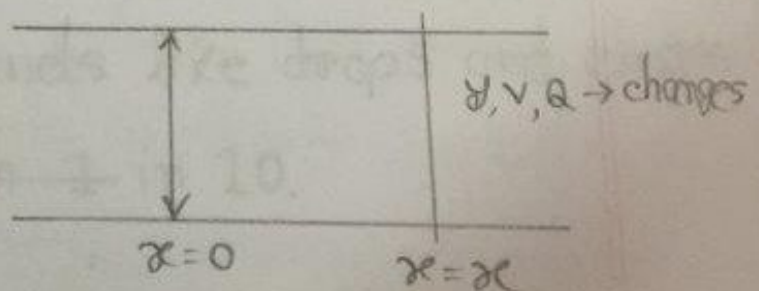 y, V, Q → changes
x = 0
x = x